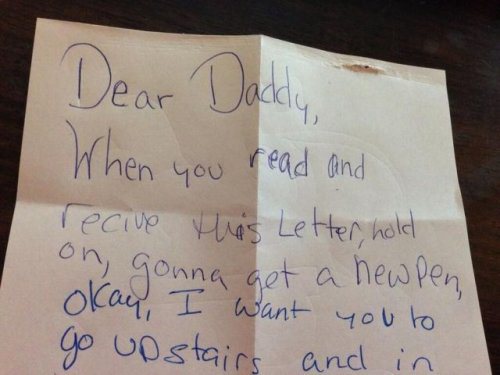 Dear Daddy,
When you read and
recive this Letter, hold
on, gonna get a new Pen,
okay, I want you to
go upstairs and in